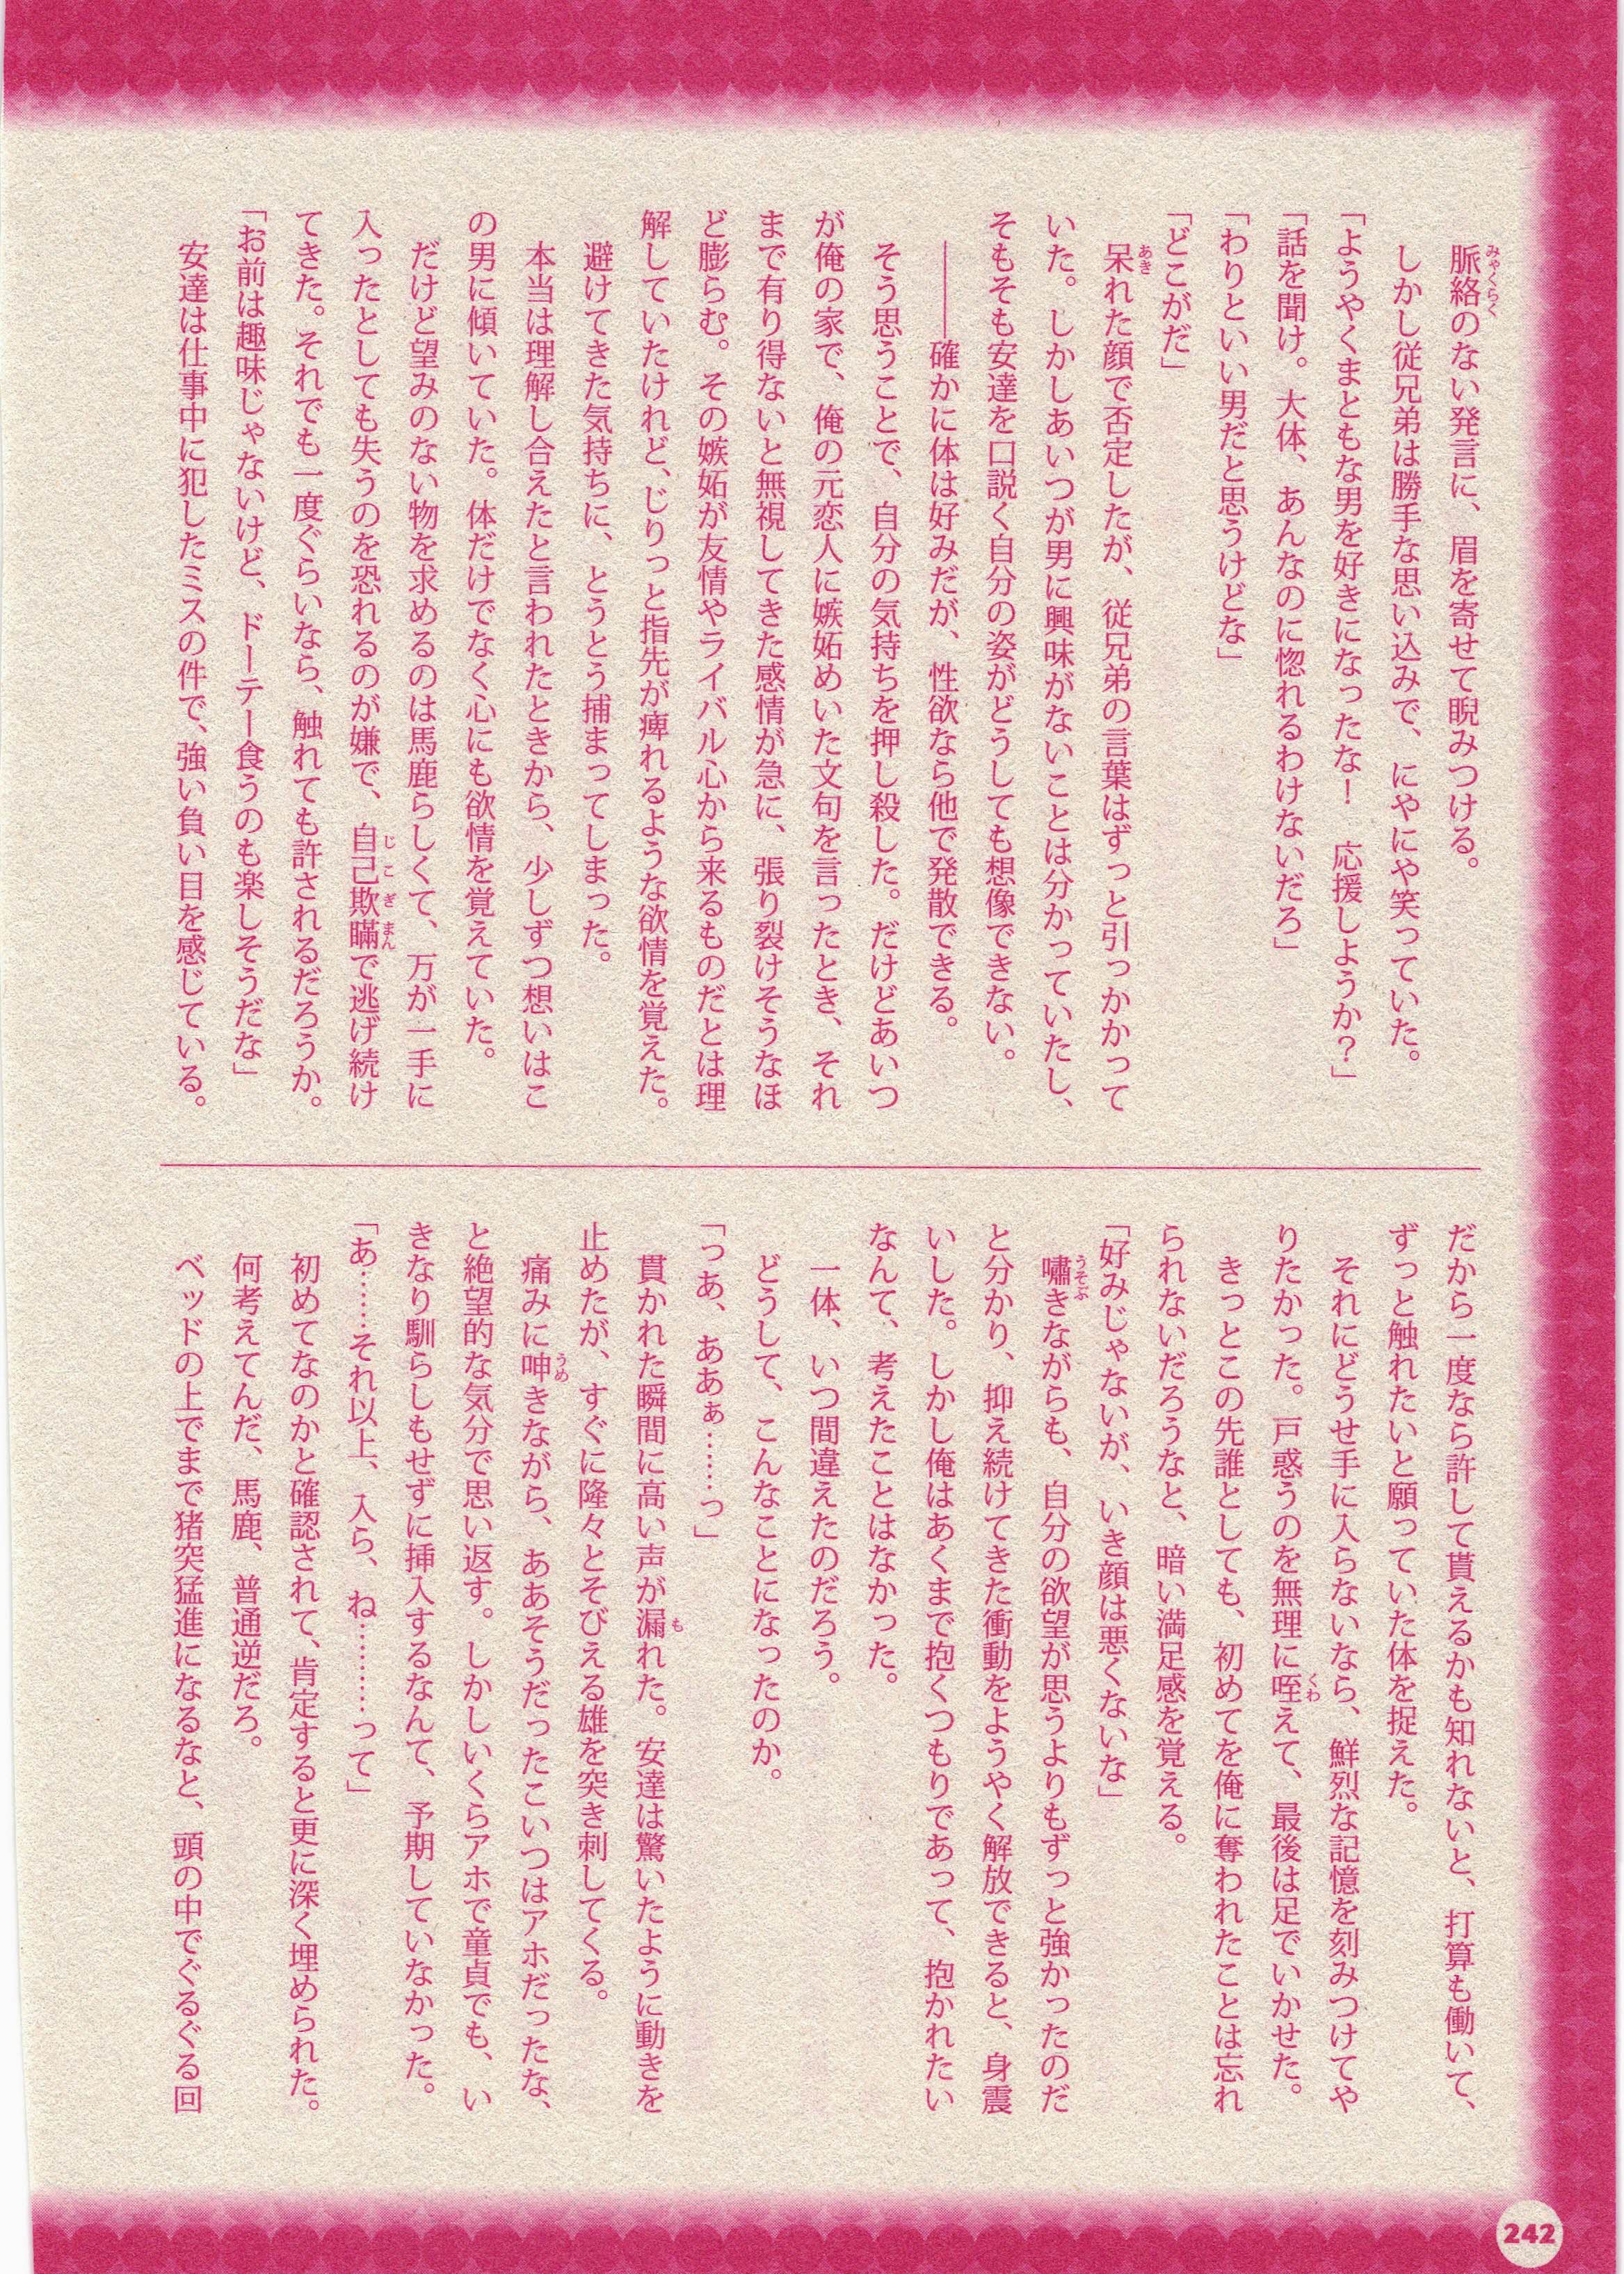 脈絡のない発言に、眉を寄せて睨みつける。
しかし従兄弟は勝手な思い込みで、にやにや笑っていた。
「ようやくまともな男を好きになったな！　応援しようか？」
「話を聞け。大体、あんなのに惚れるわけないだろ」
「わりといい男だと思うけどな」
「どこがだ」
呆れた顔で否定したが、従兄弟の言葉はずっと引っかかって
いた。しかしあいつが男に興味がないことは分かっていたし、
そもそも安達を口説く自分の姿がどうしても想像できない。
――確かに体は好みだが、性欲なら他で発散できる。
そう思うことで、自分の気持ちを押し殺した。だけどあいつ
が俺の家で、俺の元恋人に嫉妬めいた文句を言ったとき、それ
まで有り得ないと無視してきた感情が急に、張り裂けそうなほ
ど膨らむ。その嫉妬が友情やライバル心から来るものだとは理
解していたけれど、じりっと指先が痺れるような欲情を覚えた。
避けてきた気持ちに、とうとう捕まってしまった。
本当は理解し合えたと言われたときから、少しずつ想いはこ
の男に傾いていた。体だけでなく心にも欲情を覚えていた。
だけど望みのない物を求めるのは馬鹿らしくて、万が一手に
入ったとしても失うのを恐れるのが嫌で、自己欺瞞で逃げ続け
てきた。それでも一度ぐらいなら、触れても許されるだろうか。
「お前は趣味じゃないけど、ドーテー食うのも楽しそうだな」
安達は仕事中に犯したミスの件で、強い負い目を感じている。
だから一度なら許して貰えるかも知れないと、打算も働いて、
ずっと触れたいと願っていた体を捉えた。
それにどうせ手に入らないなら、鮮烈な記憶を刻みつけてや
りたかった。戸惑うのを無理に咥えて、最後は足でいかせた。
きっとこの先誰としても、初めてを俺に奪われたことは忘れ
られないだろうなと、暗い満足感を覚える。
「好みじゃないが、いき顔は悪くないな」
嘯きながらも、自分の欲望が思うよりもずっと強かったのだ
と分かり、抑え続けてきた衝動をようやく解放できると、身震
いした。しかし俺はあくまで抱くつもりであって、抱かれたい
なんて、考えたことはなかった。
一体、いつ間違えたのだろう。
どうして、こんなことになったのか。
「っあ、ああぁ……っ」
貫かれた瞬間に高い声が漏れた。安達は驚いたように動きを
止めたが、すぐに隆々とそびえる雄を突き刺してくる。
痛みに呻きながら、ああそうだったこいつはアホだったな、
と絶望的な気分で思い返す。しかしいくらアホで童貞でも、い
きなり馴らしもせずに挿入するなんて、予期していなかった。
「あ……それ以上、入ら、ね………って」
初めてなのかと確認されて、肯定すると更に深く埋められた。
何考えてんだ、馬鹿、普通逆だろ。
ベッドの上でまで猪突猛進になるなと、頭の中でぐるぐる回
242